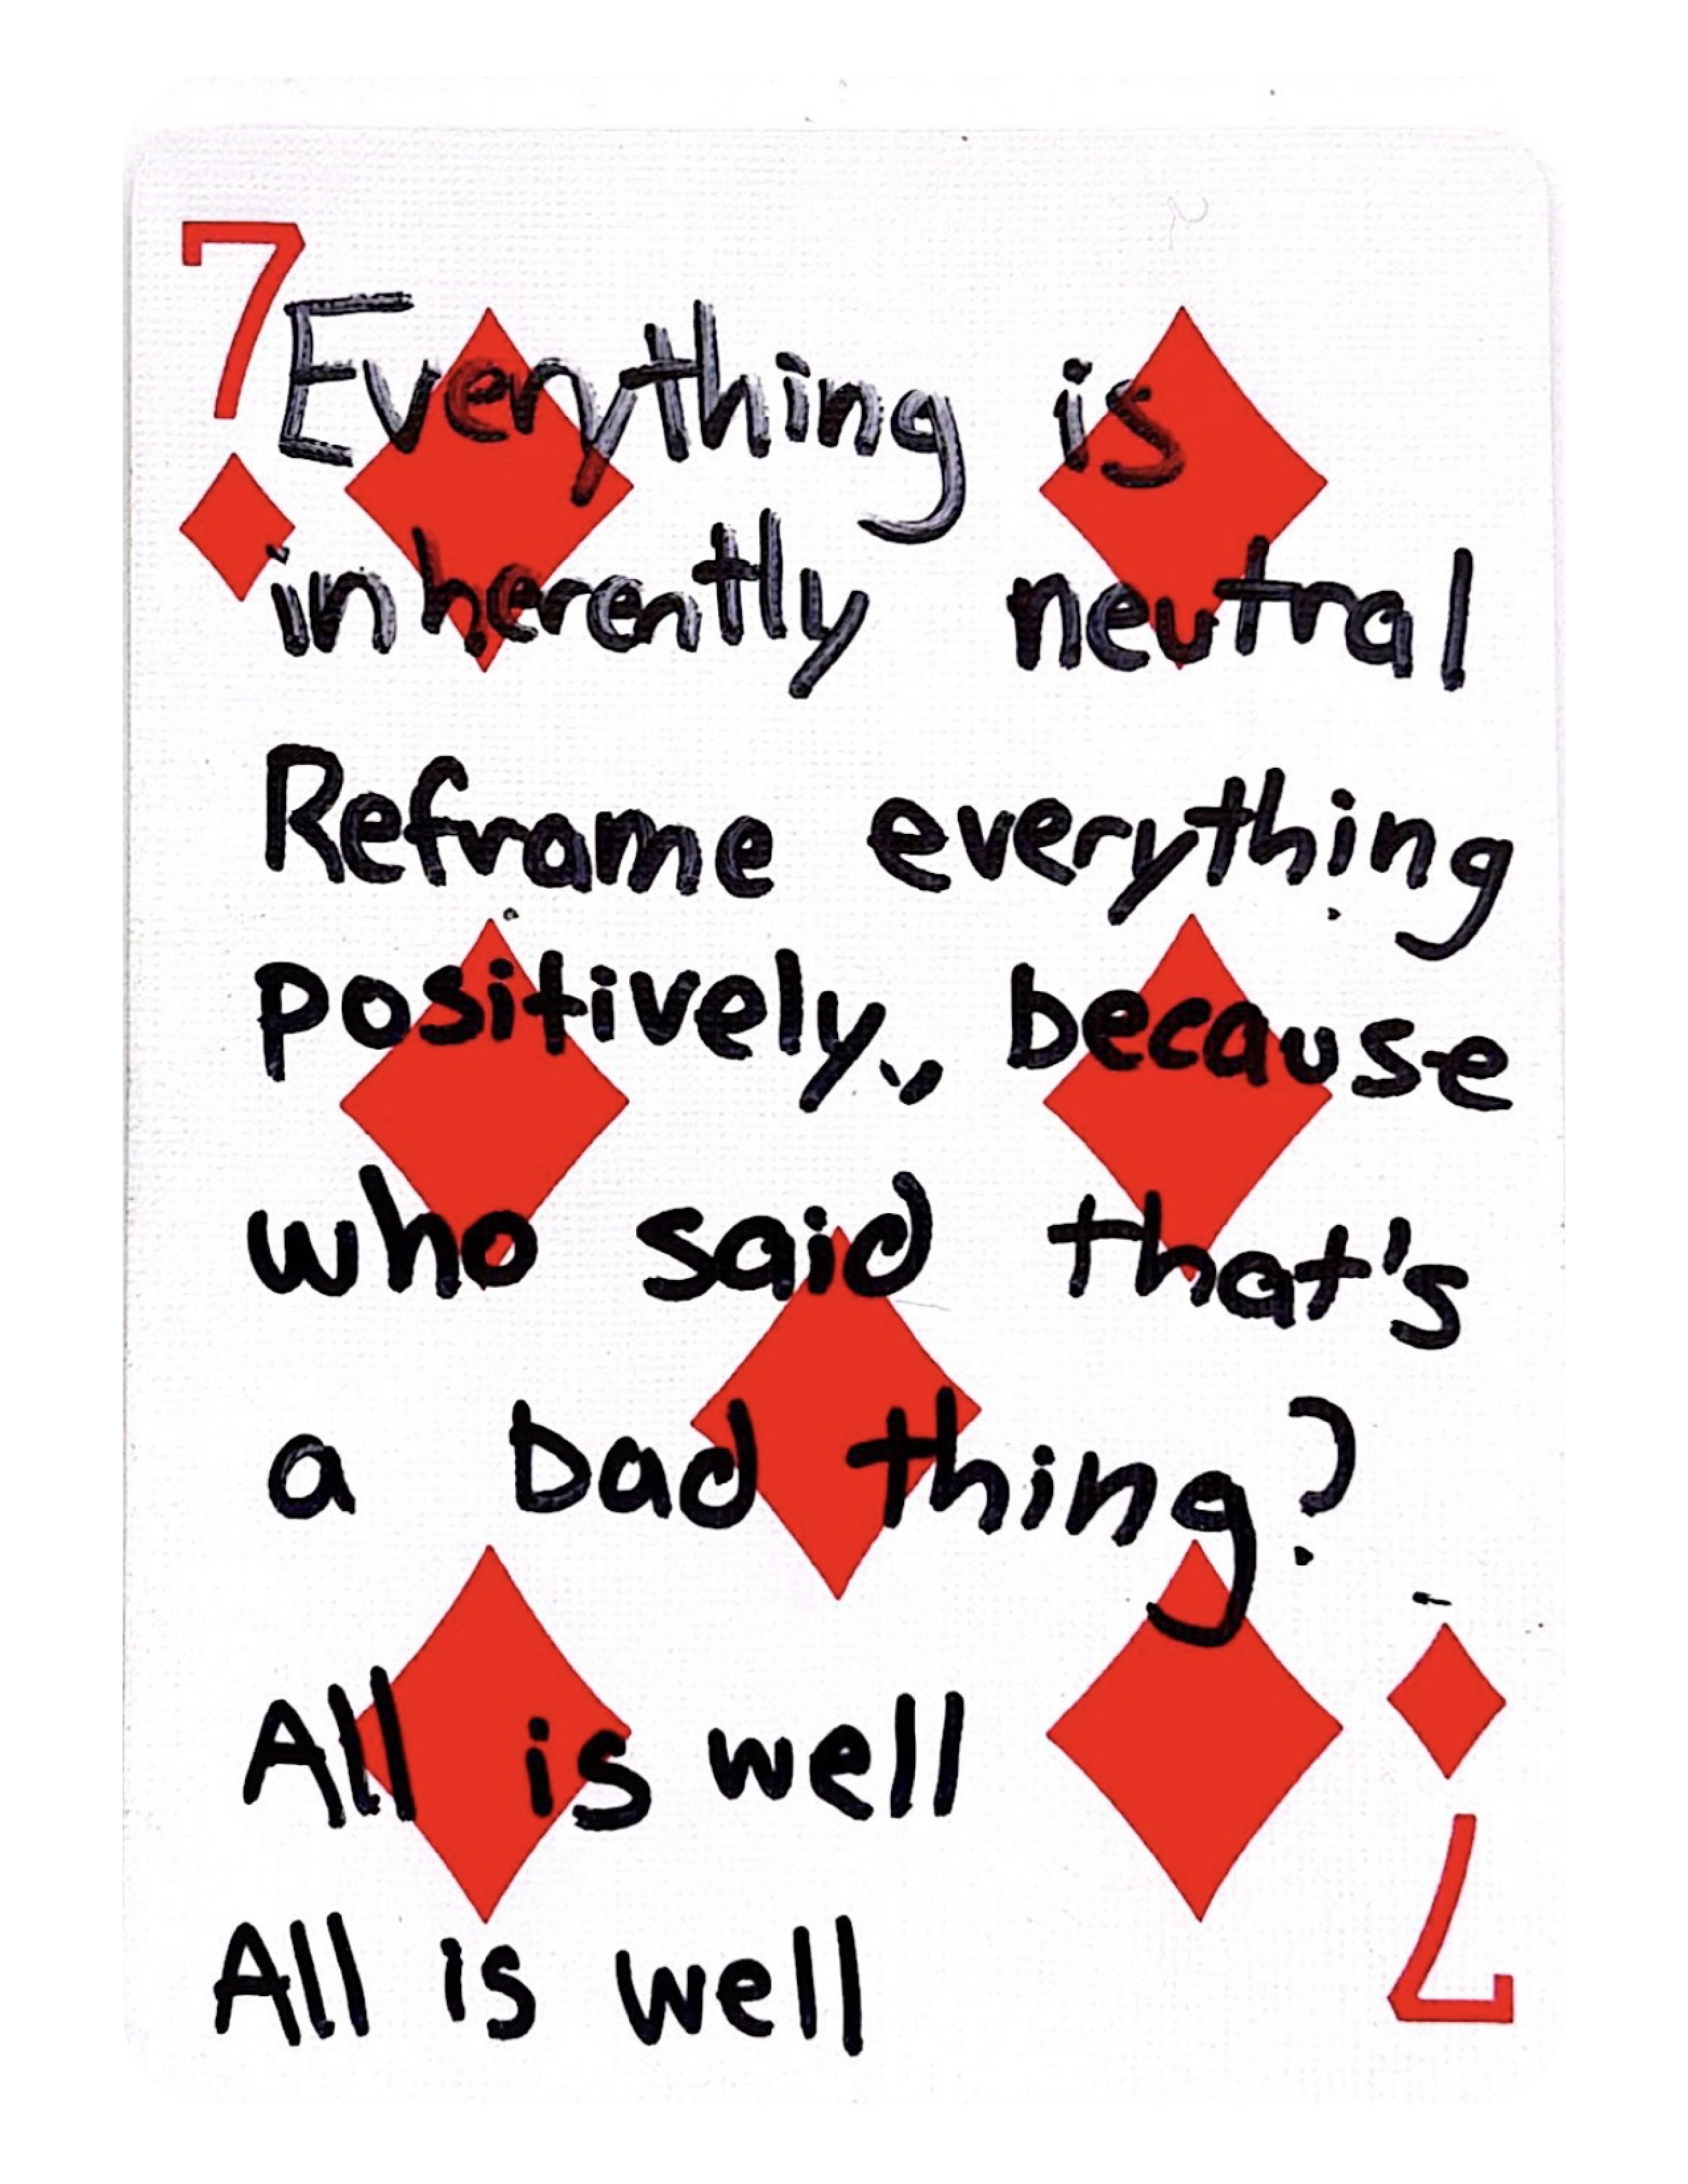 7
Everything is
inherently neutral
Reframe everything
positively, because
who said that's
a bad thing?
All is well
All is well
7